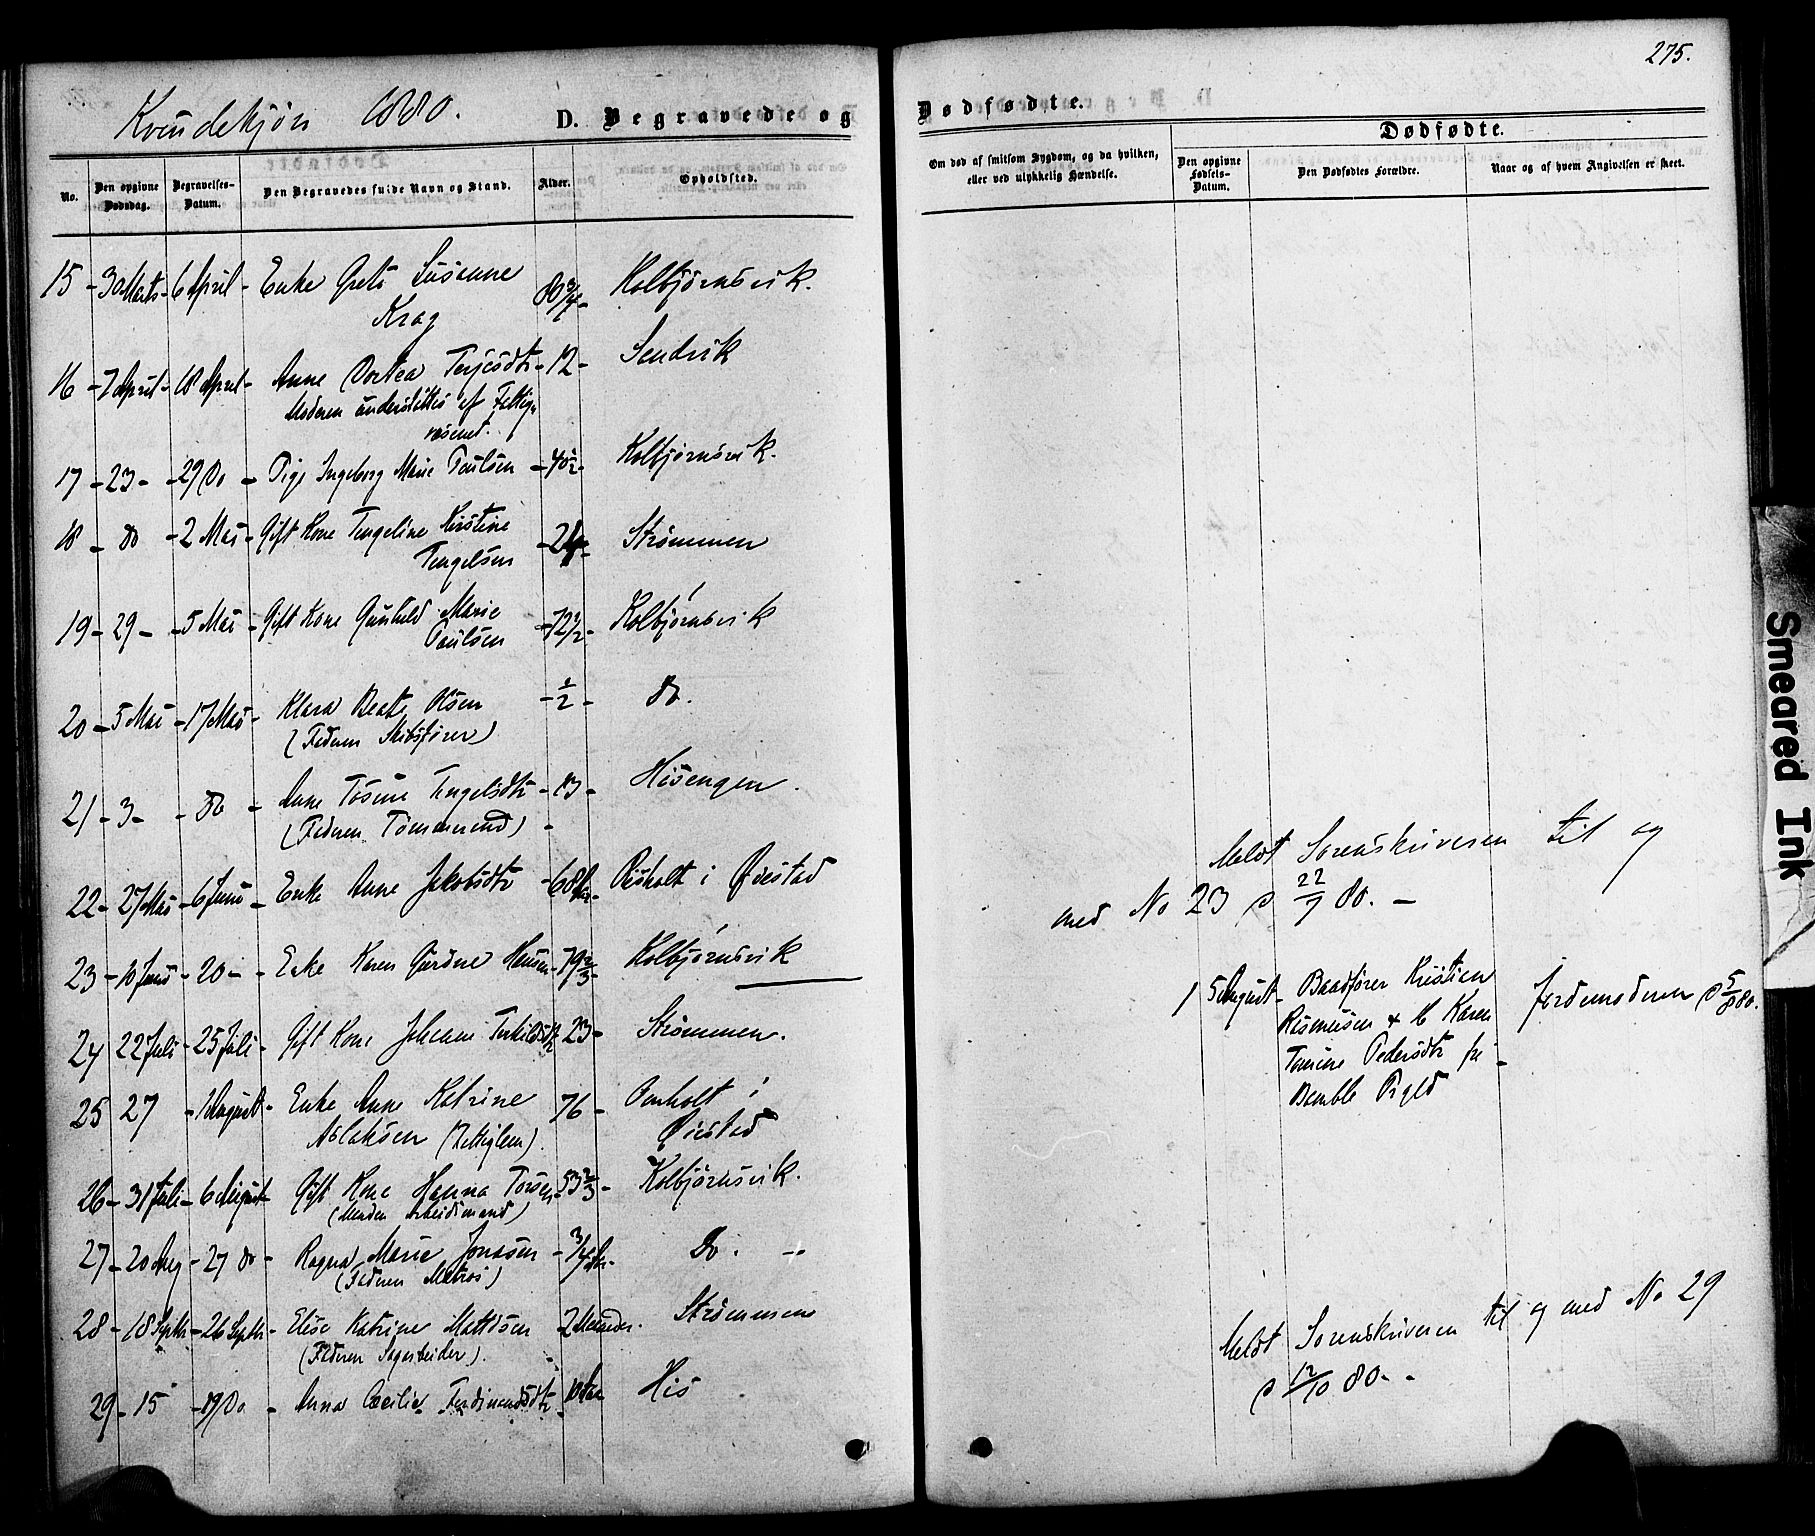 275.
Kvindekjøn 1880.
D. Begravede og Dødfødte.
Dødfødte.
No.
Den opgivne Dødsdag.
Begravelses-Datum.
Den Begravedes fulde Navn og Stand.
Alder.
Opholdsted.
Om død af smitsom Sygdom, og da hvilken, eller ved ulykkelig Hændelse.
Den opgivne Fødsels-Datum.
Den Dødfødtes Forældre.
Naar og af hvem Angivelsen er skeet.
15 - 30 Marts - 6 April - Enke Grete Susanne 80 3/4 - Kolbjørnsvik.
Krag
16 - 7 April - 18 April - Anne Dortea Terjesdtr - 12 - Sandvik
Moderen understøttes af Fattig-
væsenet.
17 - 23 - - 29 Do - Pige Ingeborg Marie Paulsen - 40 1/2 - Kolbjørnsvik.
18 - Do - 2 Mai - Gift Kone Tengeline Kirstine - 24 - Strømmen
Tengelsen
19 - 29 - - 5 Mai - Gift Kone Gunhild Marie - 72 1/2 - Kolbjørnsvik
Paulsen
20 - 5 Mai - 17 Mai - Klara Beate Olsen - 1/2 - Do.
(Faderen Skibsfører)
21 - 3 - - Do - Anne Tosine Tengelsdtr - 13 - Hisengen.
(Faderen Tømmermand)
22 - 27 Mai - 6 Juni - Enke Anne Jakobsdtr - 68 Aar - Risholt i Øiestad
23 - 10 Juni - 20 - - Enke Karen Gurine Hansen - 79 2/3 - Kolbjørnsvik
24 - 22 Juli - 25 Juli - Gift Kone Johanne Terkildsdtr - 23 - Strømmen.
25 27 - 1 August - Enke Anne Katrine 76 - Omholt i
Aslaksen (Fattiglem). Øiestad
26 - 31 Juli - 6 August - Gift Kone Hanna Torsen - 53 2/3 - Kolbjørnsvik.
(Manden Arbeidsmand)
27 - 20 Aug - 27 Do - Ragna Marie Jonasen - 3/4 Aar - Do. -
(Faderen Matros)
28 - 18 Septbr - 26 Septbr - Elise Katrine Mattisen - 2 Maaneder. Strømmene
(Faderen Sagarbeider).
29 - 15 - 19 Do - Anna Cecilie Ferdinandsdtr - 10 Aar His
Meldt Sorenskriveren til og
med No 23 d 22/7 80. -
1 5 August - Baadfører Kristian Jordemoderen d 5/8 80.
Rasmusen & H Karen
Tomine Pedersdtr fra -
Bamble Prgld
Meldt Sorenskriveren til og med No 29
d 12/10 80. -
Smeared Ink